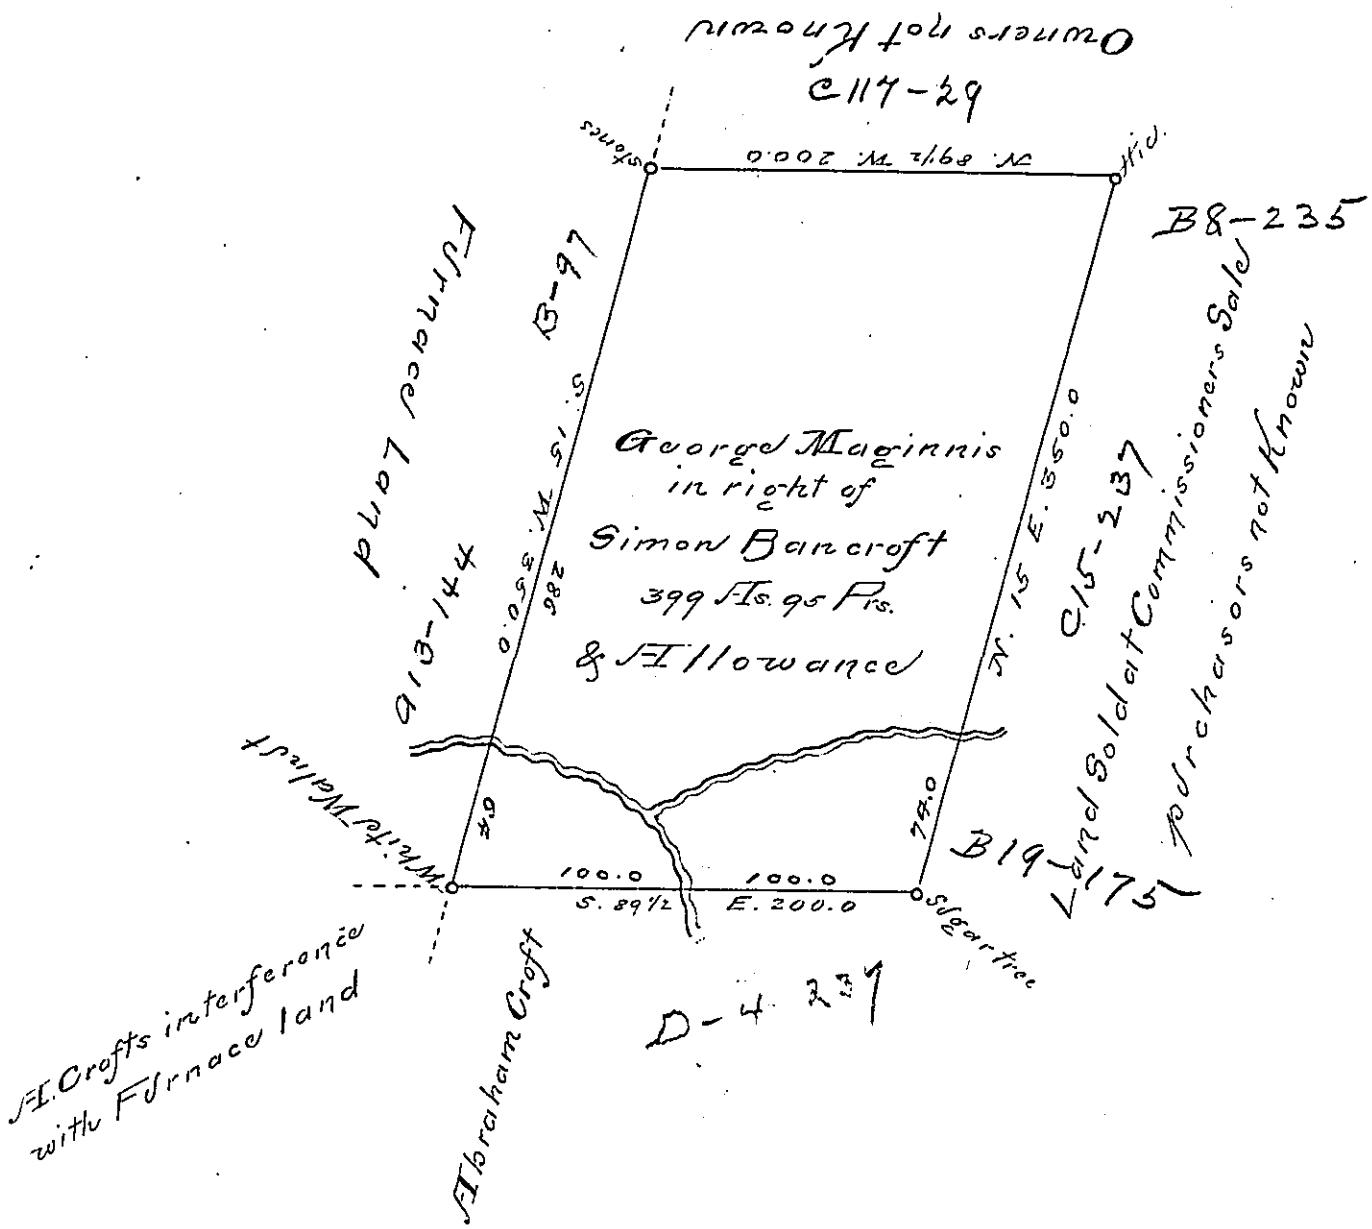 Owners not Known
C117-29
stones
N. 89½ W. 200.0
Hic.
B8-235
Furnace Land
B-97
S. 15 W. 350.0
286
A13-144
George Maginnis
in right of
Simon Bancroft
399 As. 95 Prs.
& Allowance
N. 15 E. 350.0
C15-237
Land Sold at Commissioners Sale
purchasors not Known
White Walnut
64
74.0
B19-175
100.0 100.0
S. 89½ E. 200.0
Sugar tree
A. Crofts interference
with Furnace land
Abraham Croft
D-4